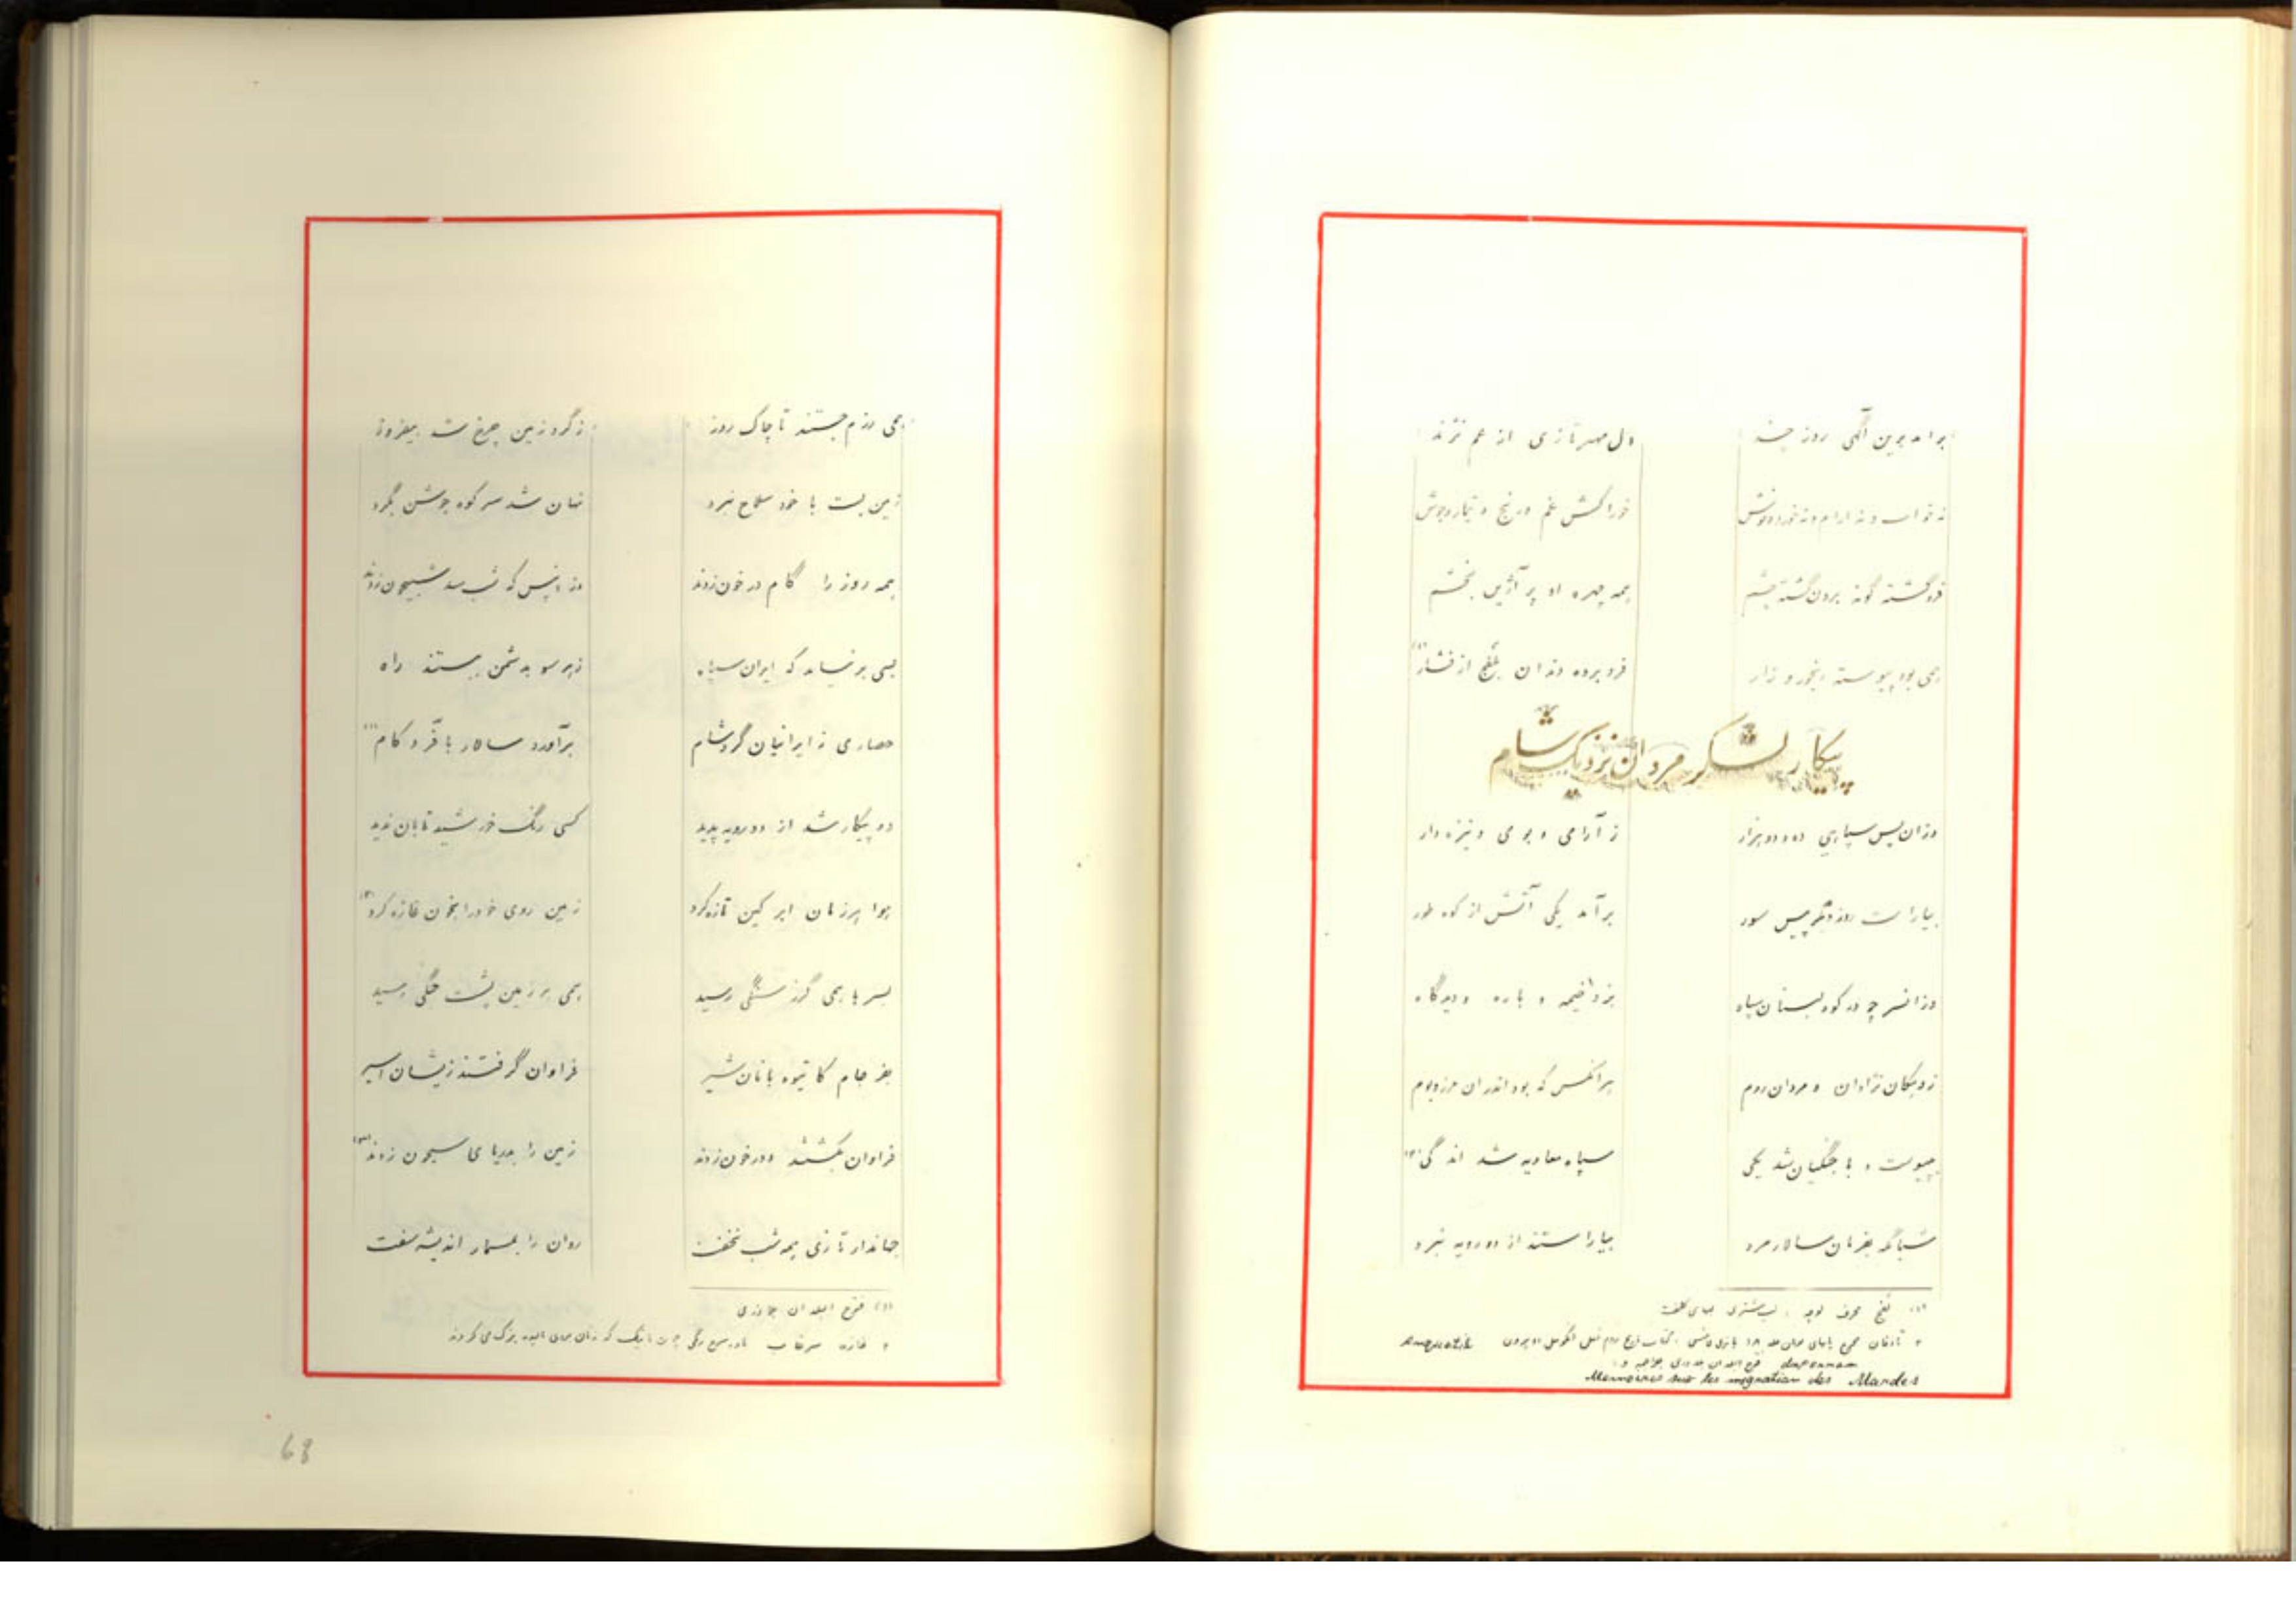 برآمد برین آگهی روز چند دل مهر تازی از غم نژند
نه خواب و نه آرام و نه خورد و نوش خوراکش غم و رنج و تیمار و جوش
فرو گشته گونه برون گشته چشم همه چهره او پر آژین بخشم
همی بود پیوسته رنجور و زار فرو برده دندان بلفج از فشار (۱)
پیکار لشکر مردان نزدیک شام
وزان پس سپاهی ده و دو هزار ز آرامی و بومی و نیزه دار
بیاراست روز دگر پیس سور برآمد یکی آتش از کوه طور
وزانسر چو در کوه لبنان سپاه بزد خیمه و باره و دیدگاه
ز دیگان نژادان و مردان روم هرآنکس که بود اندران مرز و بوم
بپیوست و با جنگیان شد یکی سپاه معاویه شد اندکی
شبانگه بفرمان سالار مرد بیاراستند از دو رویه نبرد
(۱) لفج لب شتری
Anquetil
duperron
Memoires sur les migration des Mardes
همی رزم جستند تا چاک روز ز گرد زمین چرخ شد
زمین بست با خود سلاح نبرد نهان شد سر کوه جوشن بگرد
همه روز را گام در خون زدند وز آنپس که شب شد شبیخون زدند
بسی برنیامد که ایران سپاه ز هر سو به دشمن ببستند راه
حصاری ز ایرانیان گرد شام برآورد سالار با فر و کام (۱)
دو پیکار شد از دو رویه پدید کسی رنگ خورشید تابان ندید
هوا هر زمان ابر کین تازه کرد زمین روی خود را بخون غازه کرد (۲)
بسرها همی گرز سنگی رسید همی بر زمین پشت جنگی رسید
بفرجام کاتیوه بانان شیر فراوان گرفتند زیشان اسیر
فراوان بکشتند و در خون زدند زمین را بدریای سیحون زدند (۳)
جهاندار تازی همه شب نخفت روان را بمسمار اندیشه سفت
(۱) فتوح البلدان بلاذری
۲ غازه سرخاب
68